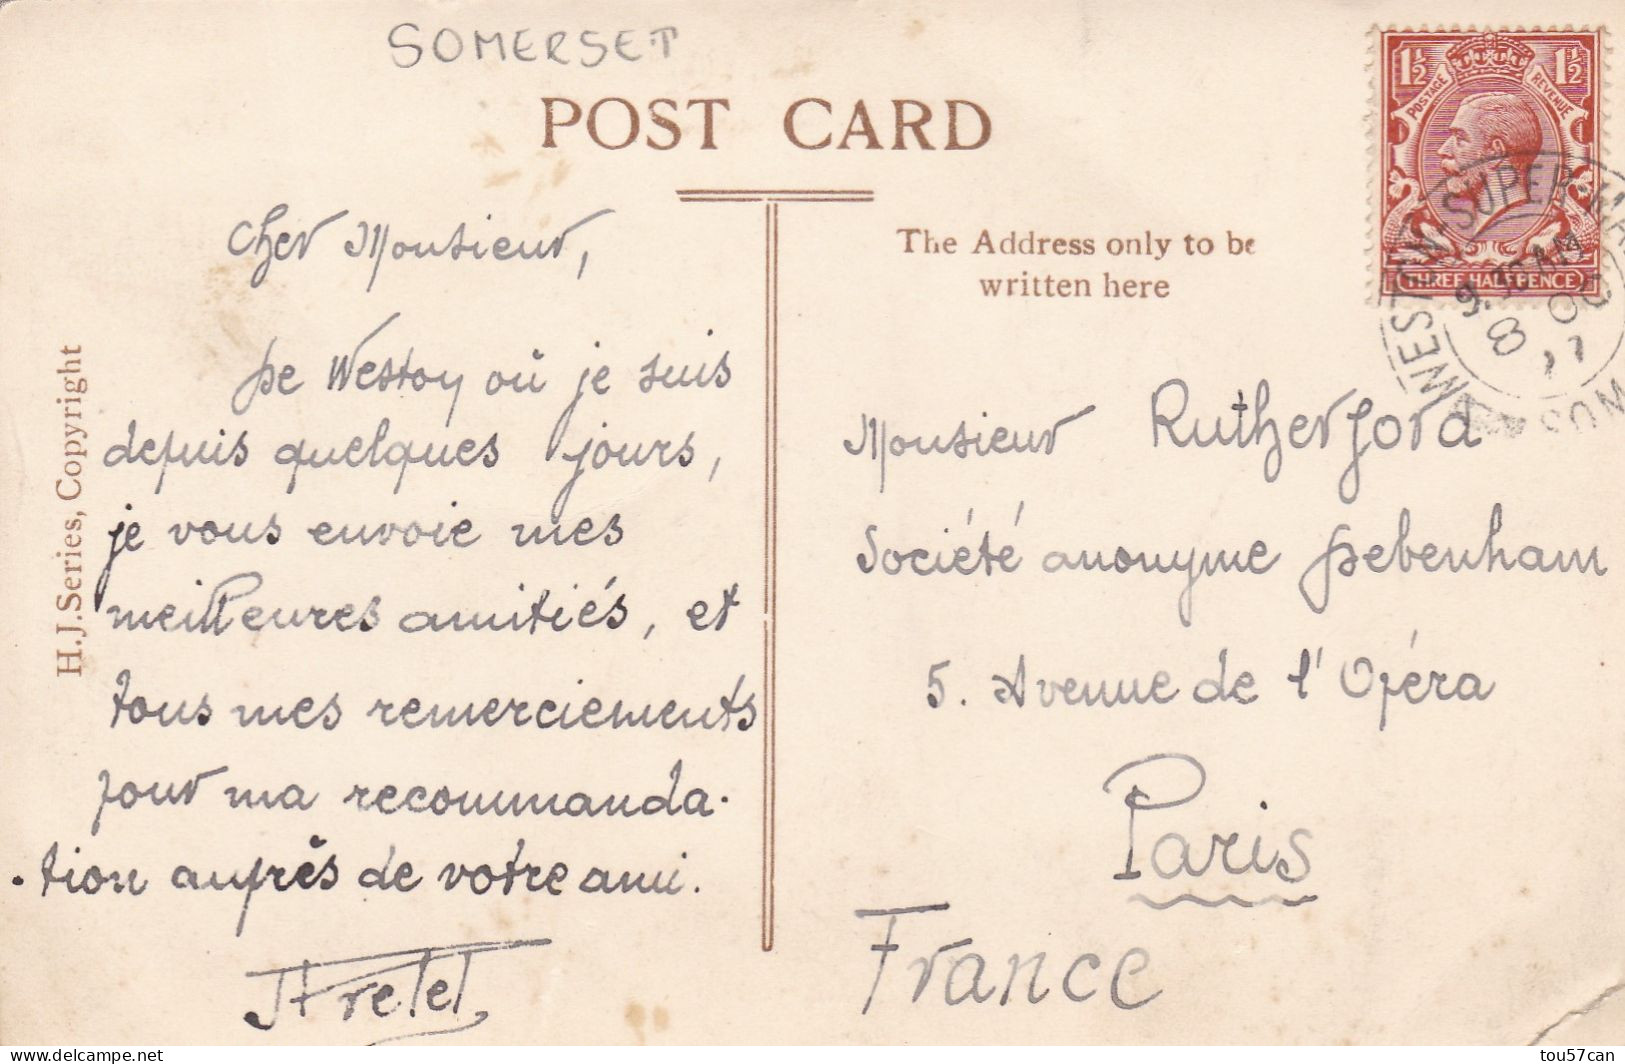 SOMERSET
POST CARD
1½ 1½
POSTAGE REVENUE
THREE HALFPENCE
WESTON-SUPER-MA
9.30 AM
8 OC
SOM
The Address only to be
written here
H.J. Series, Copyright
Cher Monsieur,
De Weston où je suis
depuis quelques jours,
je vous envoie mes
meilleures amitiés, et
tous mes remerciements
pour ma recommanda-
-tion auprès de votre ami.
Fretel
Monsieur Rutherford
Société anonyme Debenham
5. Avenue de l'Opéra
Paris
France
tou57can